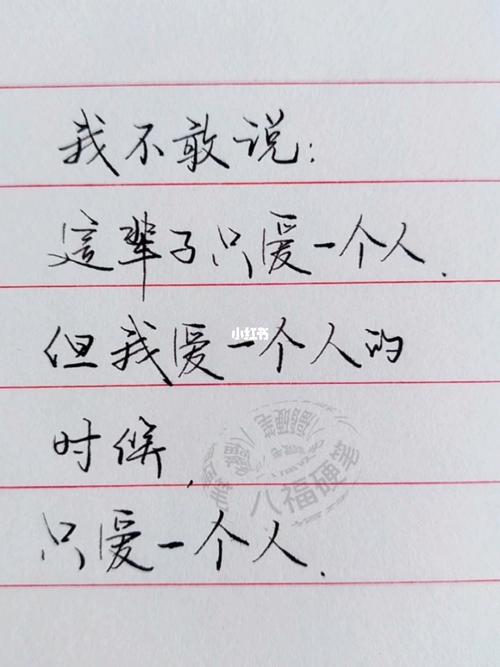 我不敢说：
这辈子只爱一个人.
但我爱一个人的
小红书
时候,
八福硬笔
只爱一个人.